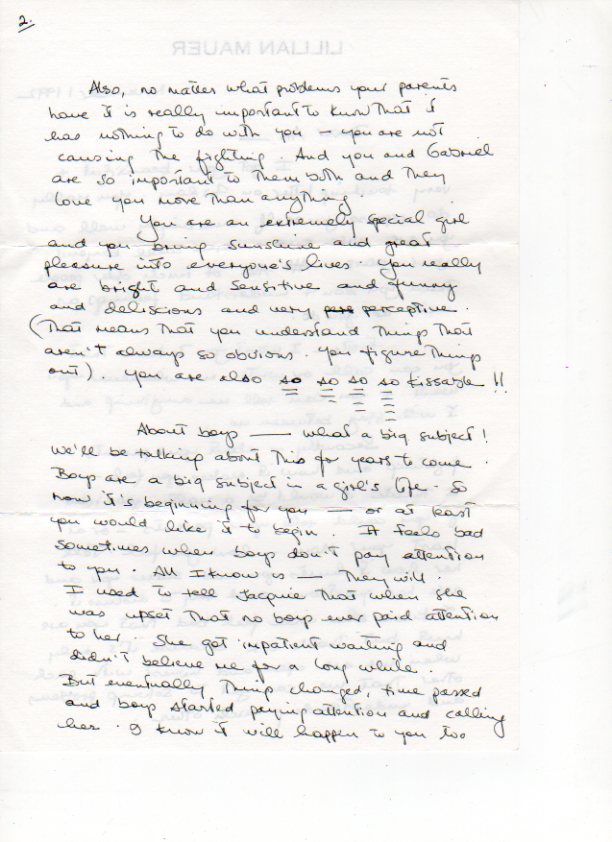 2.
LILLIAN MAUER
Also, no matter what problems your parents
have it is really important to know that it
has nothing to do with you — you are not
causing the fighting. And you and Gabriel
are so important to them both and they
love you more than anything.
You are an extremely special girl
and you bring sunshine and great
pleasure into everyone's lives. You really
are bright and sensitive and funny
and delicious and very perceptive.
(That means that you understand things that
aren't always so obvious. You figure things
out). You are also so so so so kissable!!
About boys — what a big subject!
We'll be talking about this for years to come.
Boys are a big subject in a girl's life. So
now it's beginning for you — or at least
you would like it to begin. It feels bad
sometimes when boys don't pay attention
to you. All I know is — they will.
I used to tell Jacquie that when she
was upset that no boy ever paid attention
to her. She got impatient waiting and
didn't believe me for a long while.
But eventually, things changed, time passed
and boys started paying attention and calling
her. I know it will happen to you too